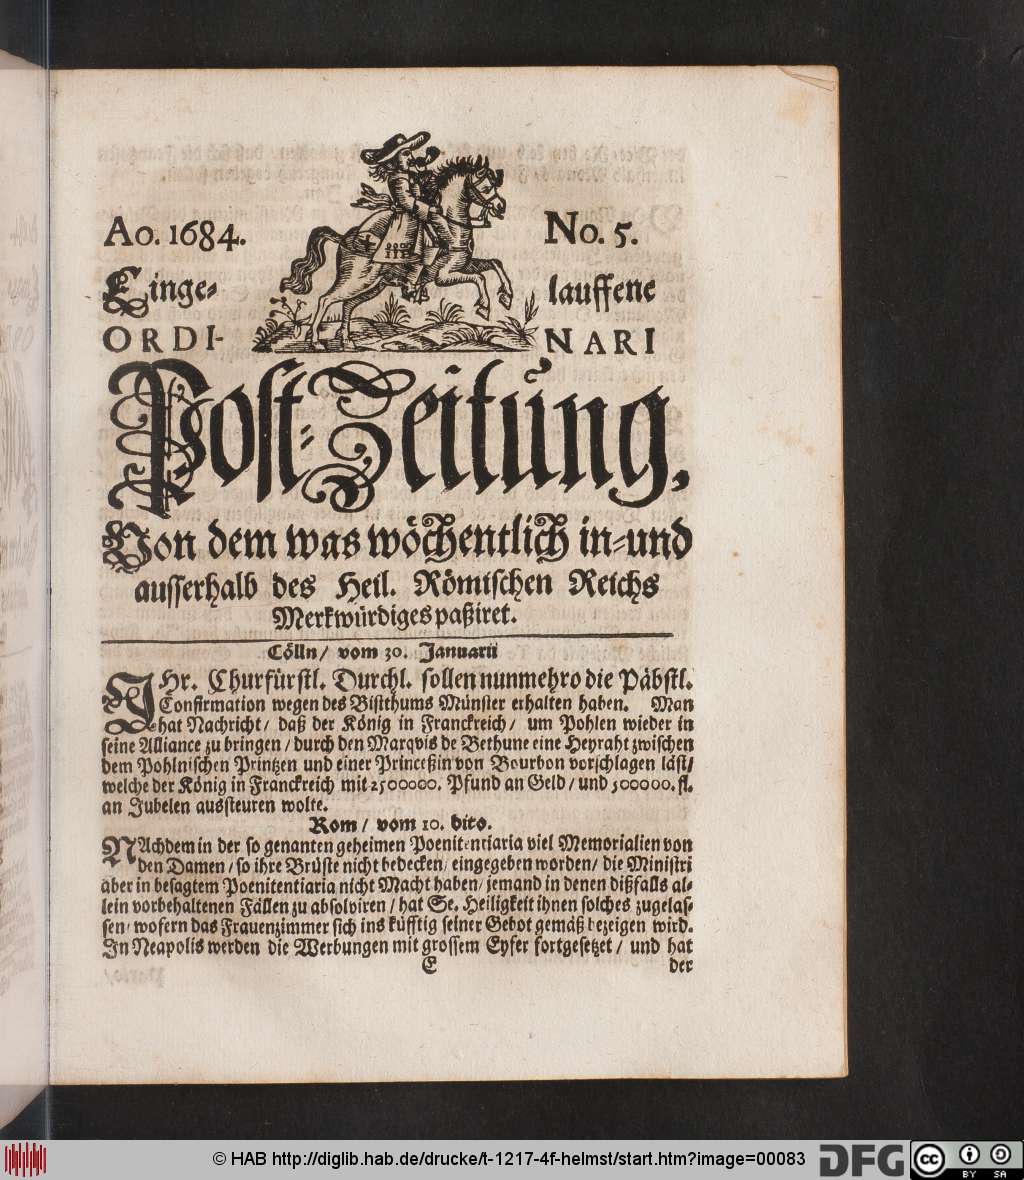 Ao. 1684. No. 5.
Einge- lauffene
ORDI- NARI
Post-Zeitung,
Von dem was wöchentlich in-und
ausserhalb des Heil. Römischen Reichs
Merkwürdiges paßiret.
Cölln/ vom 30. Januarii
IHr. Churfürstl. Durchl. sollen nunmehro die Päbstl.
Confirmation wegen des Bistthums Münster erhalten haben. Man
hat Nachricht/ daß der König in Franckreich/ um Pohlen wieder in
seine Alliance zu bringen/ durch den Marqvis de Bethune eine Heyraht zwischen
dem Pohlnischen Printzen und einer Princeßin von Bourbon vorschlagen läst/
welche der König in Franckreich mit 2500000. Pfund an Geld/ und 500000. fl.
an Jubelen aussteuren wolte.
Rom/ vom 10. dito.
NAchdem in der so genanten geheimen Poenitentiaria viel Memorialien von
den Damen/ so ihre Brüste nicht bedecken/ eingegeben worden/ die Ministri
aber in besagtem Poenitentiaria nicht Macht haben/ jemand in denen dißfalls al-
lein vorbehaltenen Fällen zu absolviren/ hat Se. Heiligkeit ihnen solches zugelas-
sen/ wofern das Frauenzimmer sich ins küfftig seiner Gebot gemäß bezeigen wird.
In Neapolis werden die Werbungen mit grossem Eyfer fortgesetzet/ und hat
E der
© HAB http://diglib.hab.de/drucke/t-1217-4f-helmst/start.htm?image=00083
DFG
cc BY SA